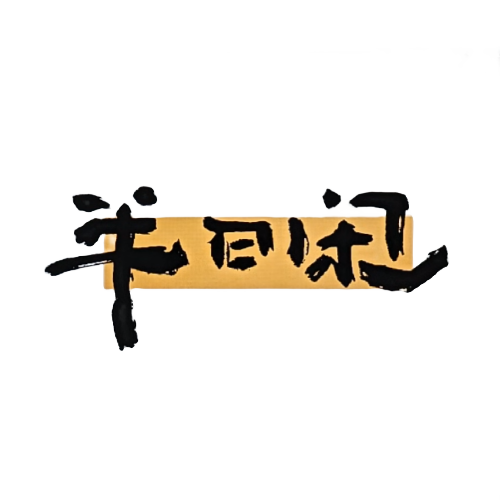 半日闲